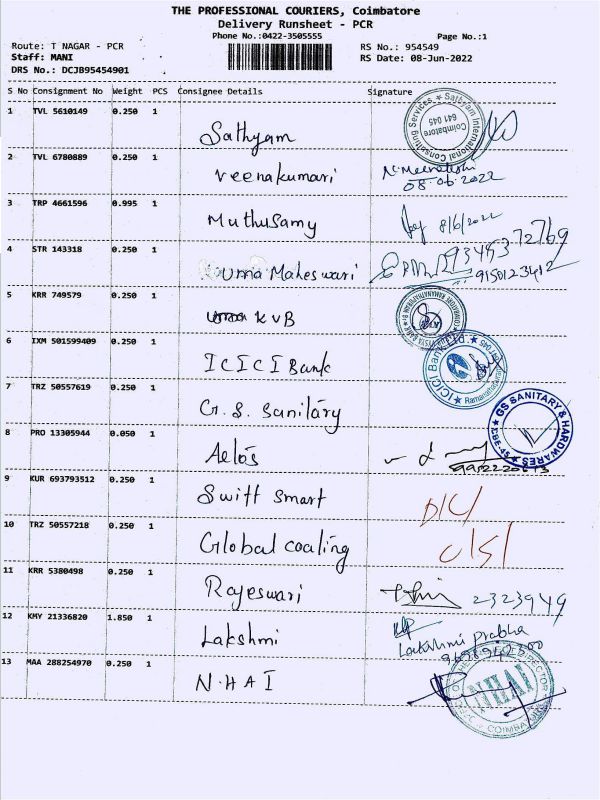 THE PROFESSIONAL COURIERS, Coimbatore
Delivery Runsheet - PCR
Phone No.:0422-3505555 Page No.:1
Route: T NAGAR - PCR RS No.: 954549
Staff: MANI RS Date: 08-Jun-2022
DRS No.: DCJB95454901
S No Consignment No Weight PCS Consignee Details Signature
1 TVL 5610149 0.250 1
Sathyam
Sathyam International Consulting Services
Coimbatore
641 045
2 TVL 6780889 0.250 1
Veenakumari
08.06.2022
3 TRP 4661596 0.995 1
Muthusamy 8/6/2022
4 STR 143318 0.250 1
Uma Maheswari 9345372769
9150123412
5 KRR 749579 0.250 1
KVB
6 IXM 501599409 0.250 1
ICICI Bank
ICICI Bank Ltd.
7 TRZ 50557619 0.250 1
G. S. Sanitary
GS SANITARY & HARDWARES
CBE-45
8 PRO 13305944 0.050 1
9 KUR 693793512 0.250 1
Swift Smart D/C/
10 TRZ 50557218 0.250 1
Global coating C/S/
11 KRR 5380498 0.250 1
Rajeswari 2323949
12 KMY 21336820 1.850 1
Lakshmi Lakshmi Prabha
13 MAA 288254970 0.250 1
N.H A I
NHAI